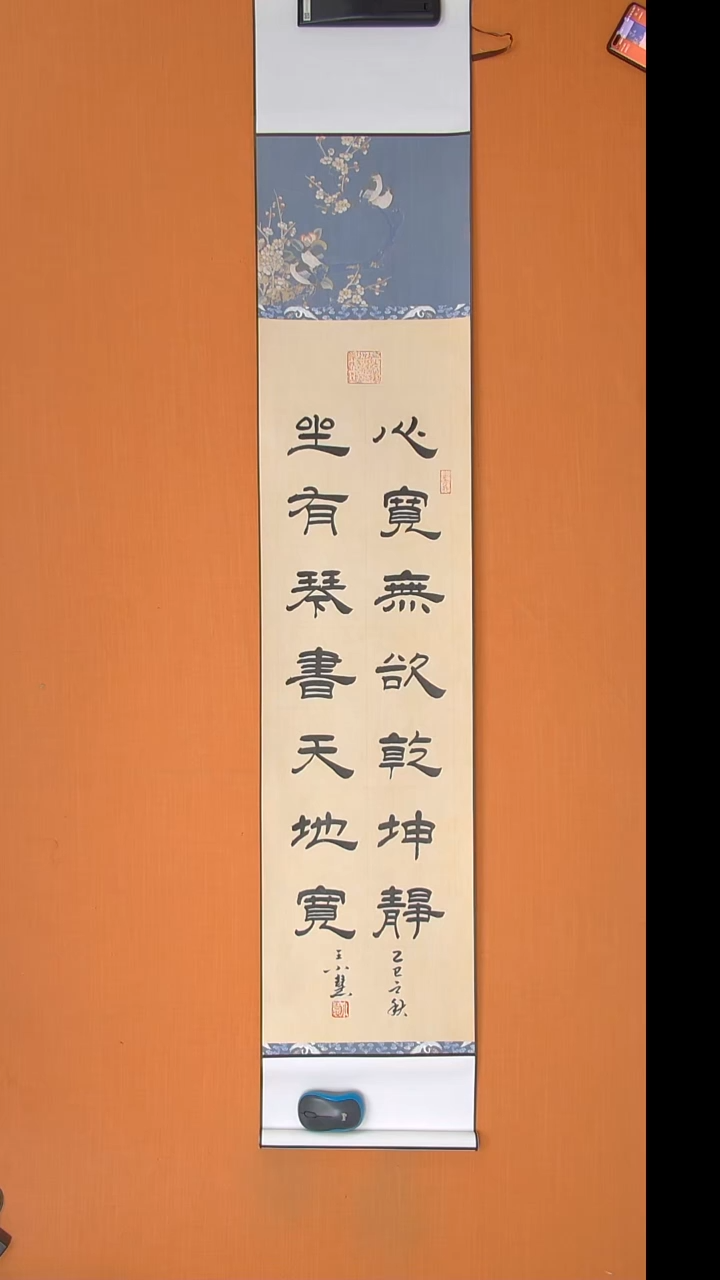 心寬無欲乾坤靜
坐有琴書天地寬
乙巳之秋
王小慧